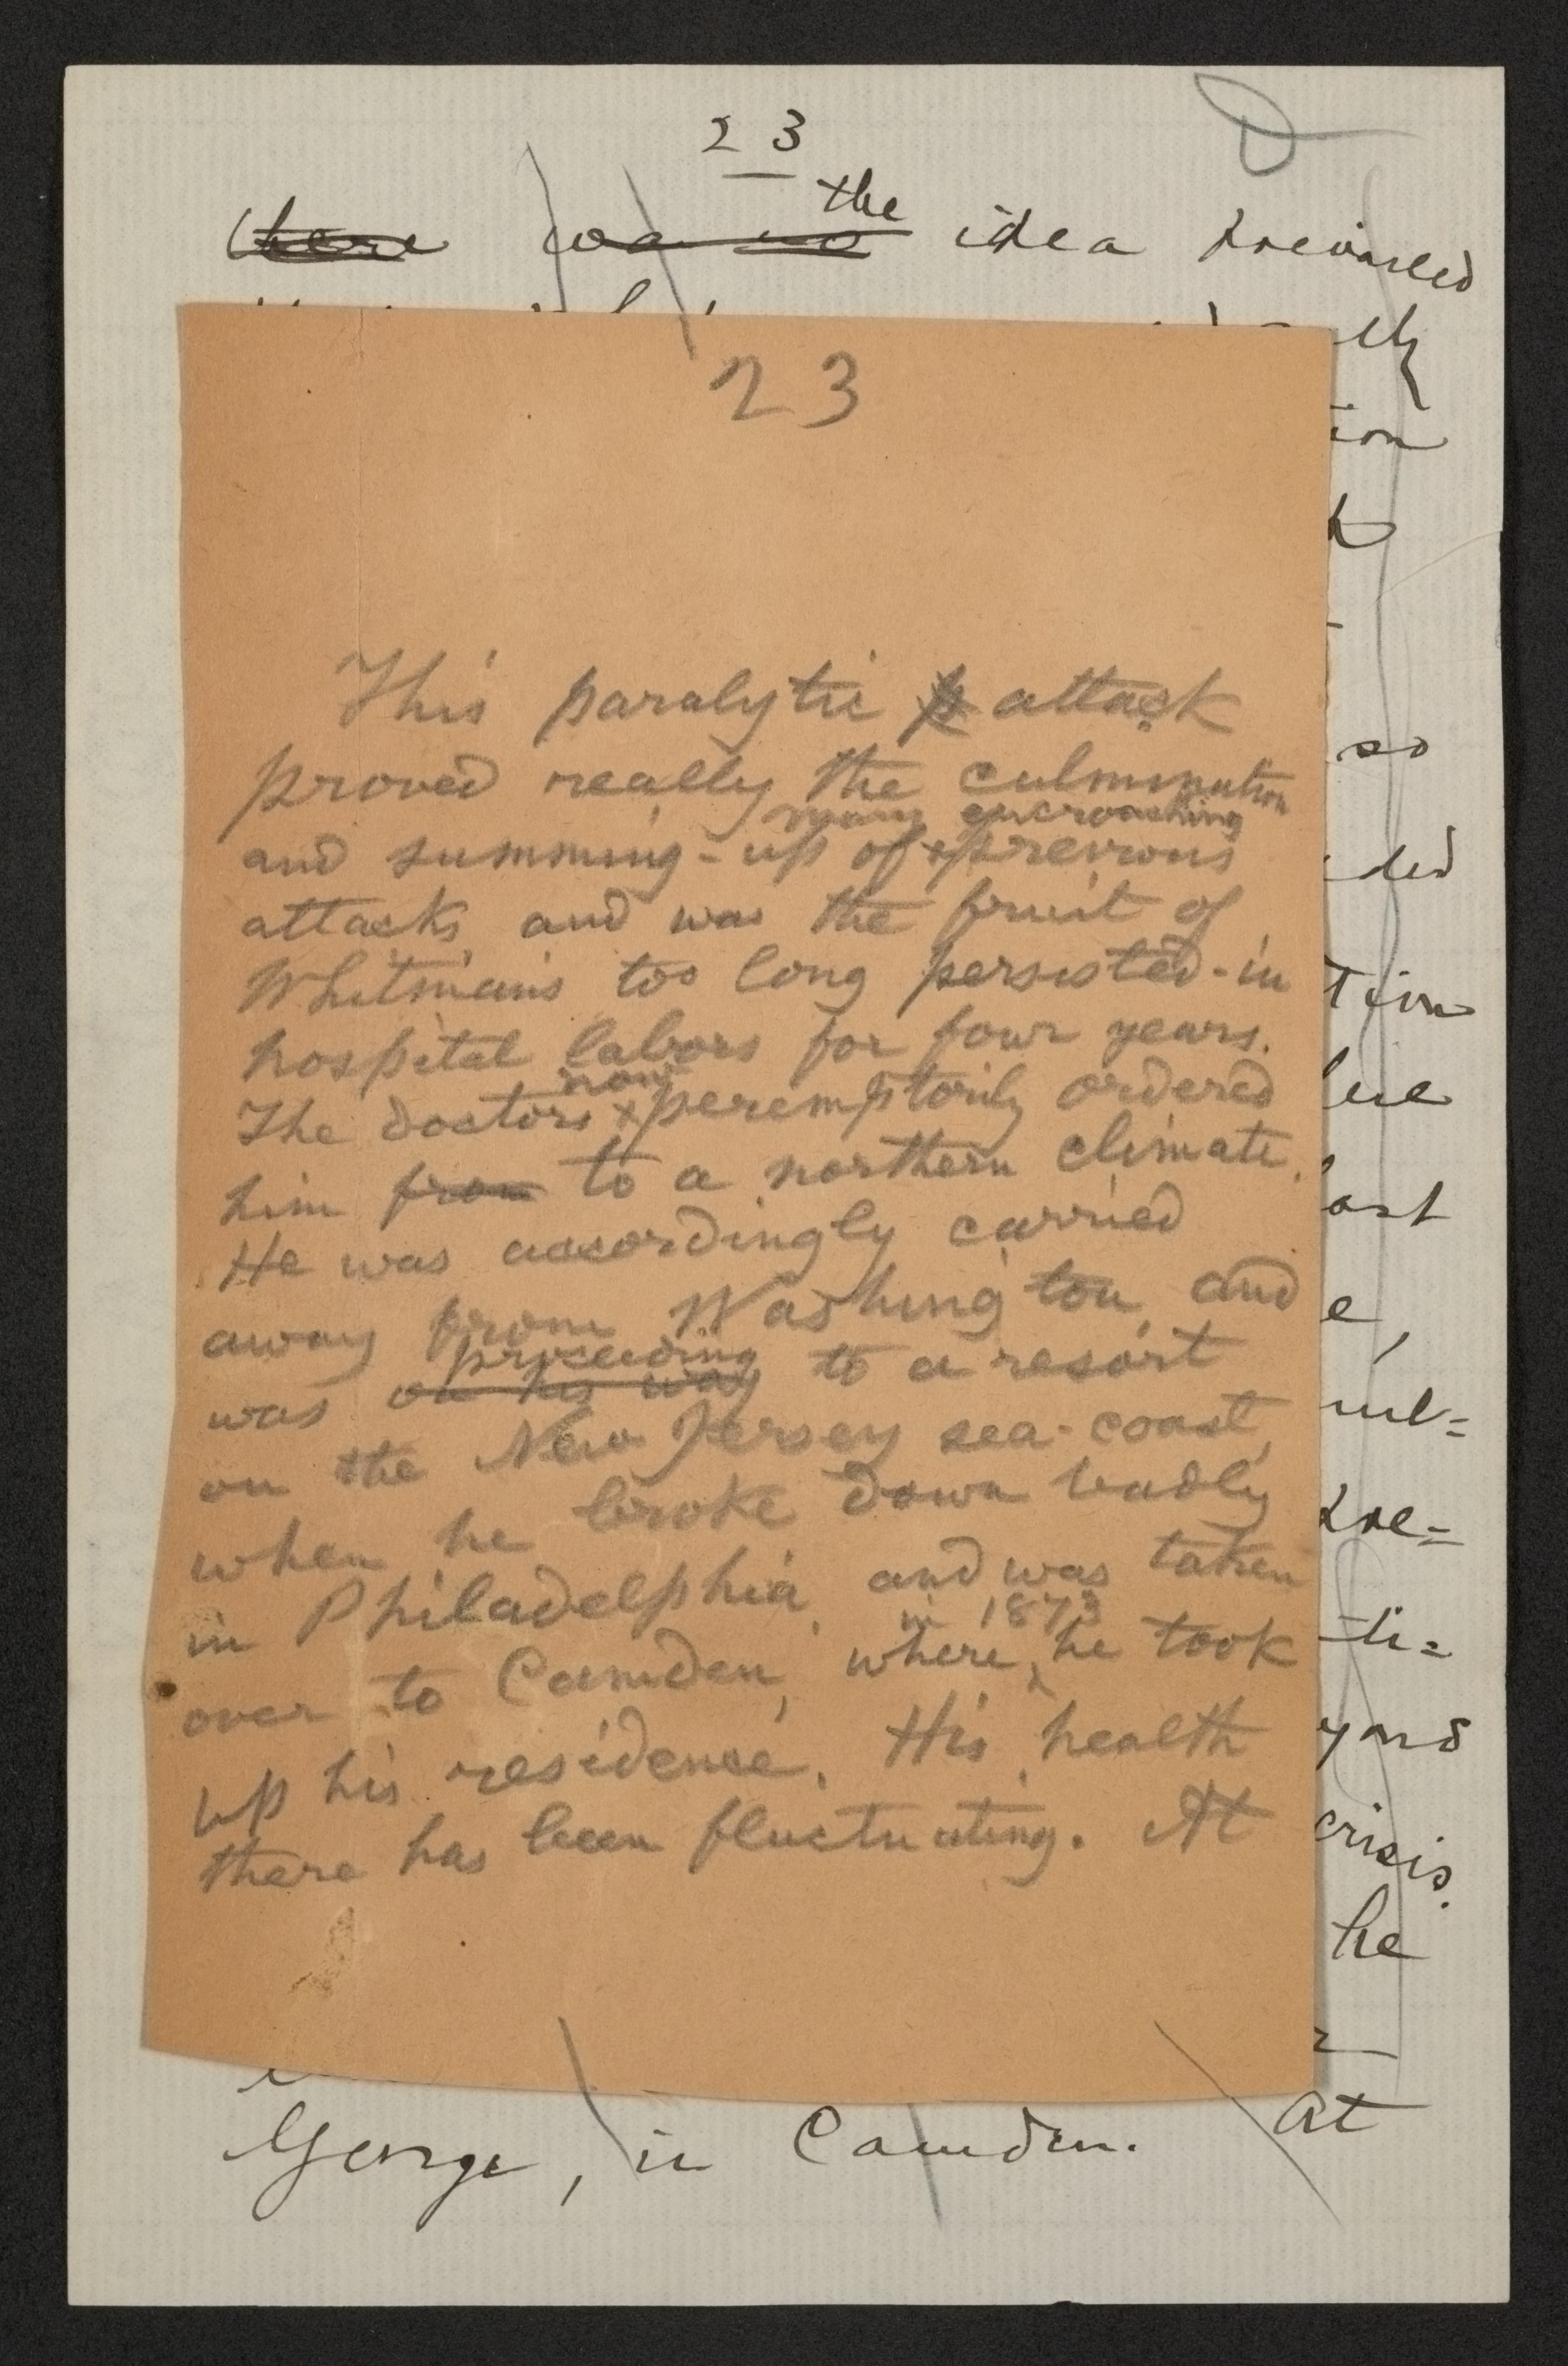 23
the
there was no idea prevailed
23
This paralytic p attack
proved really the culmination
many encroaching
and summing-up of previous
attacks, and was the fruit of
Whitman's too long persisted-in
hospital labors for four years.
now
The doctors peremptorily ordered
him from to a northern climate.
He was accordingly carried
away from Washington, and
proceeding
was on his way to a resort
on the New Jersey sea-coast,
when he broke down badly
in Philadelphia, and was taken
in 1873
over to Camden, where he took
up his residence. His health
there has been fluctuating. At
ion
so
ded
tion
last
e,
cul=
pre=
ti=
yond
crisis.
he
George, in Camden. At